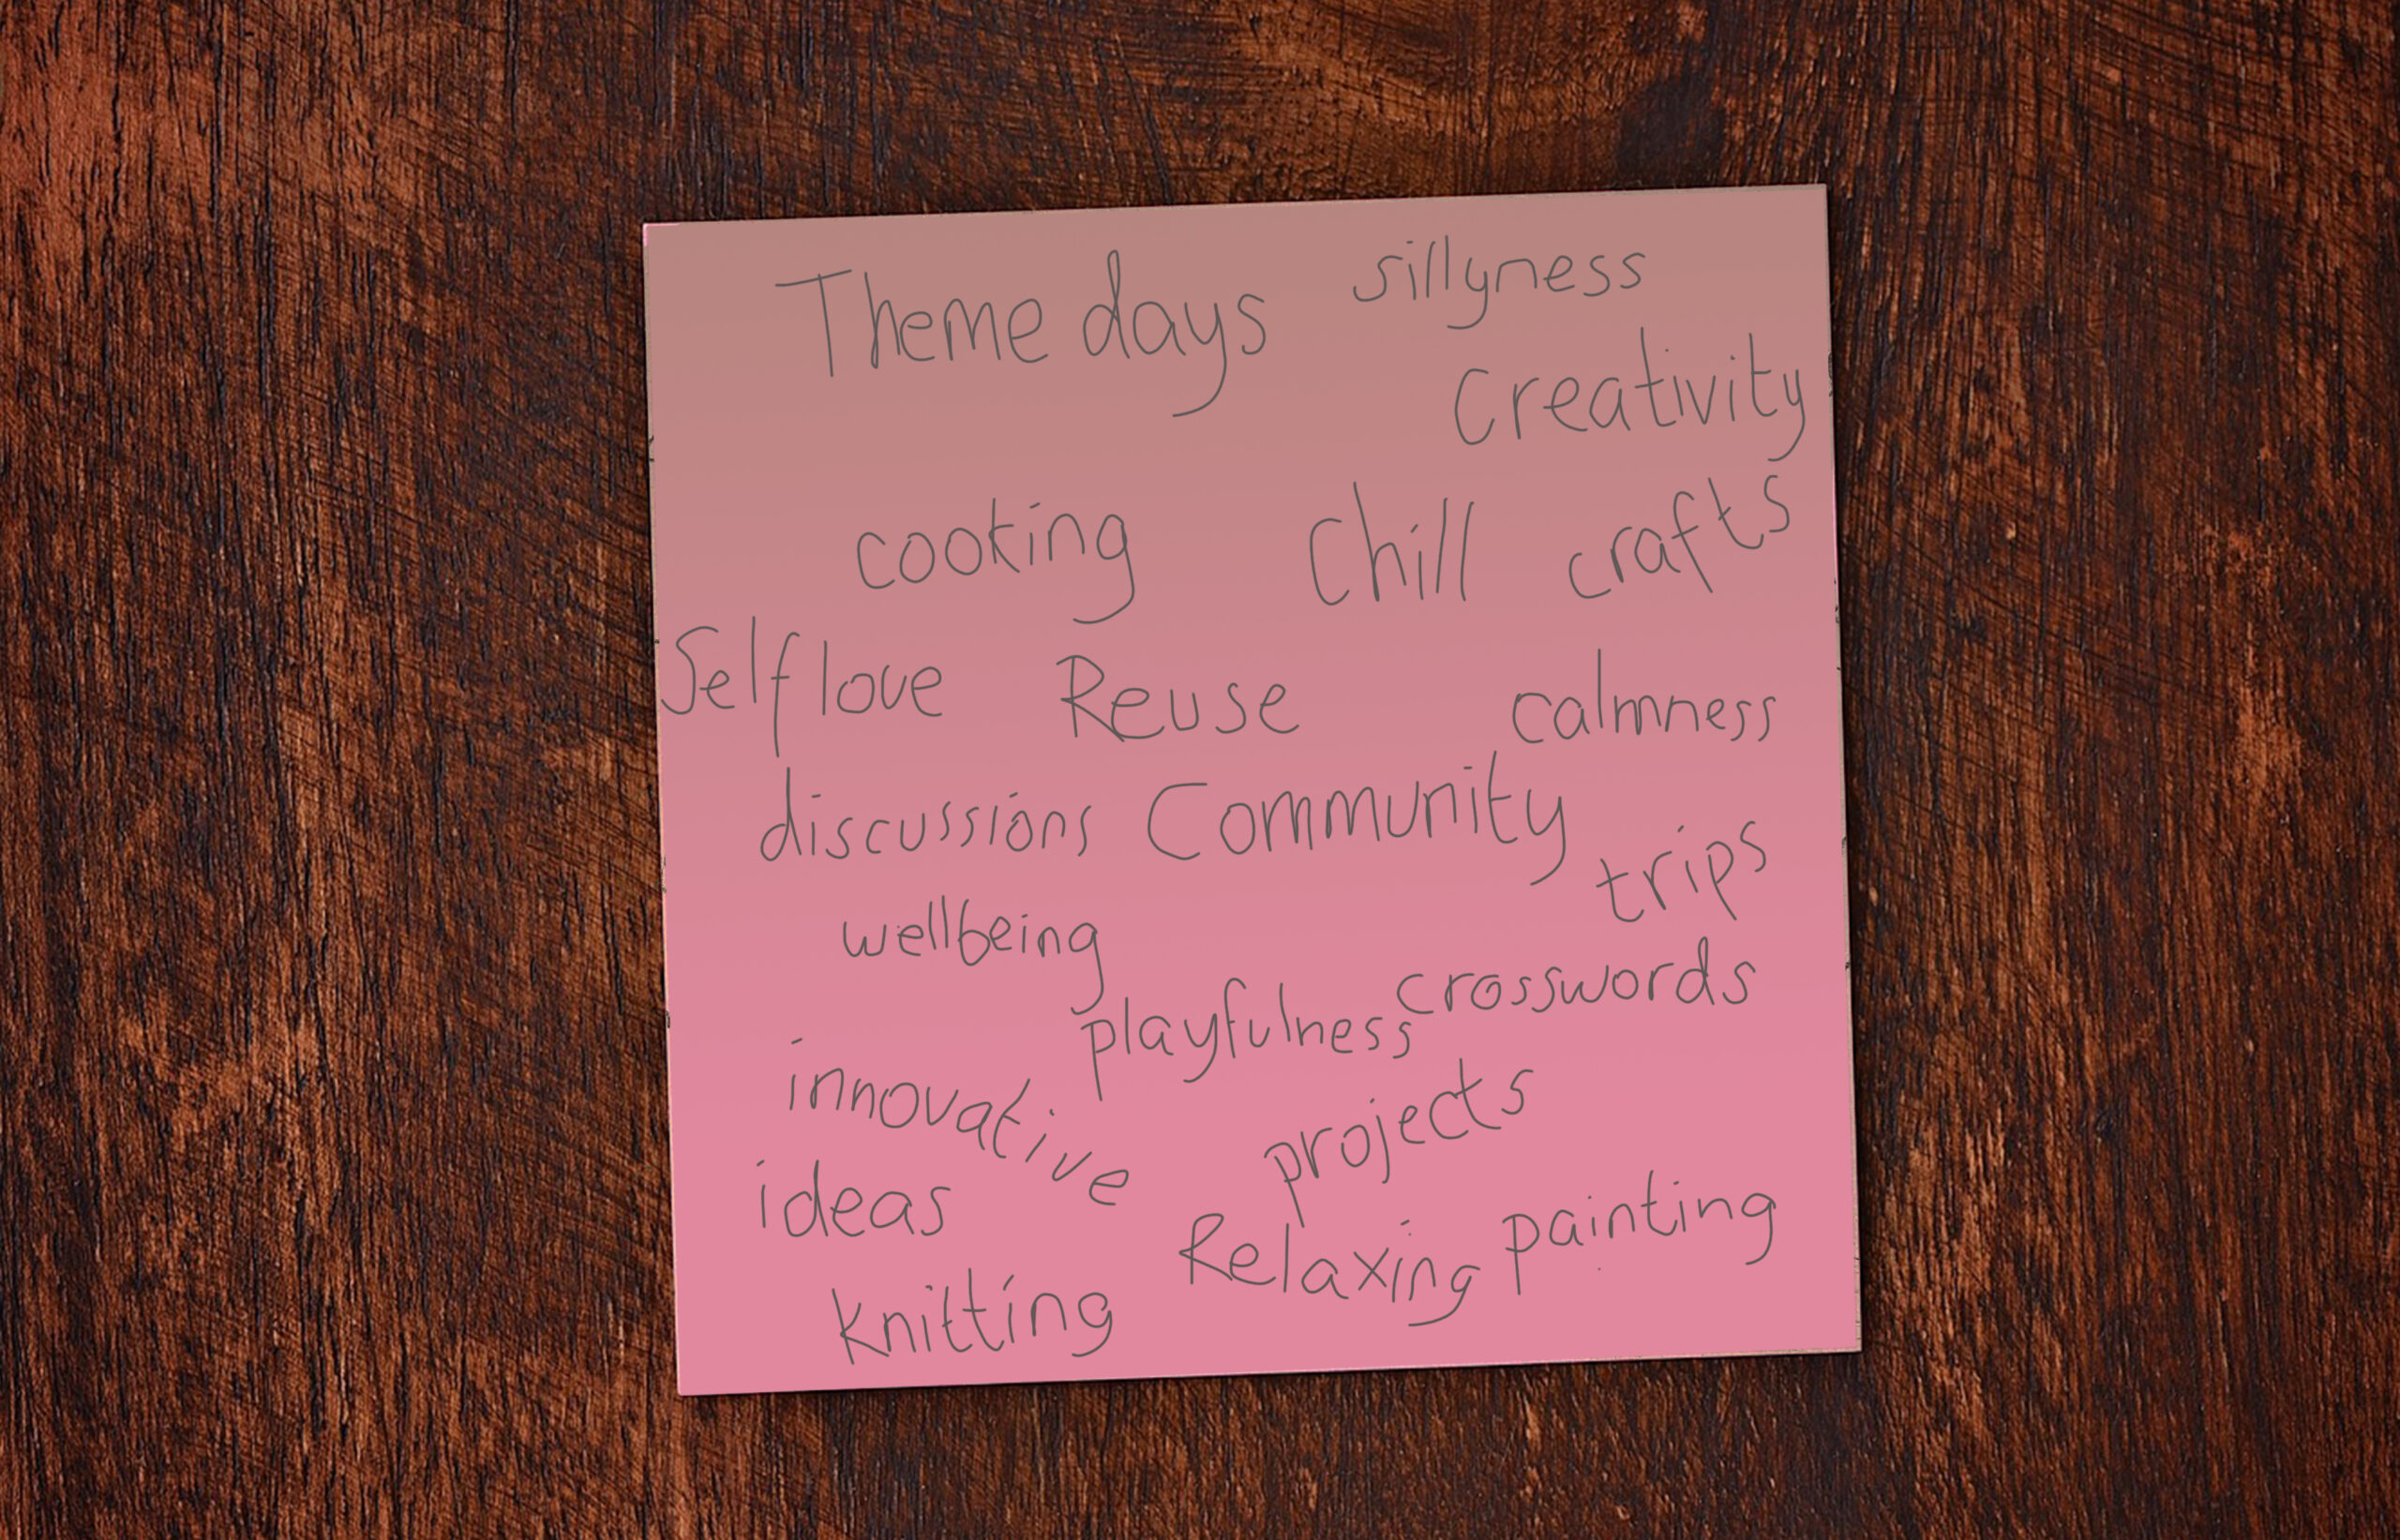 Theme days sillyness
Creativity
cooking Chill crafts
Self love Reuse calmness
discussions Community
trips
wellbeing
playfulness crosswords
innovative
projects
ideas
Relaxing painting
knitting